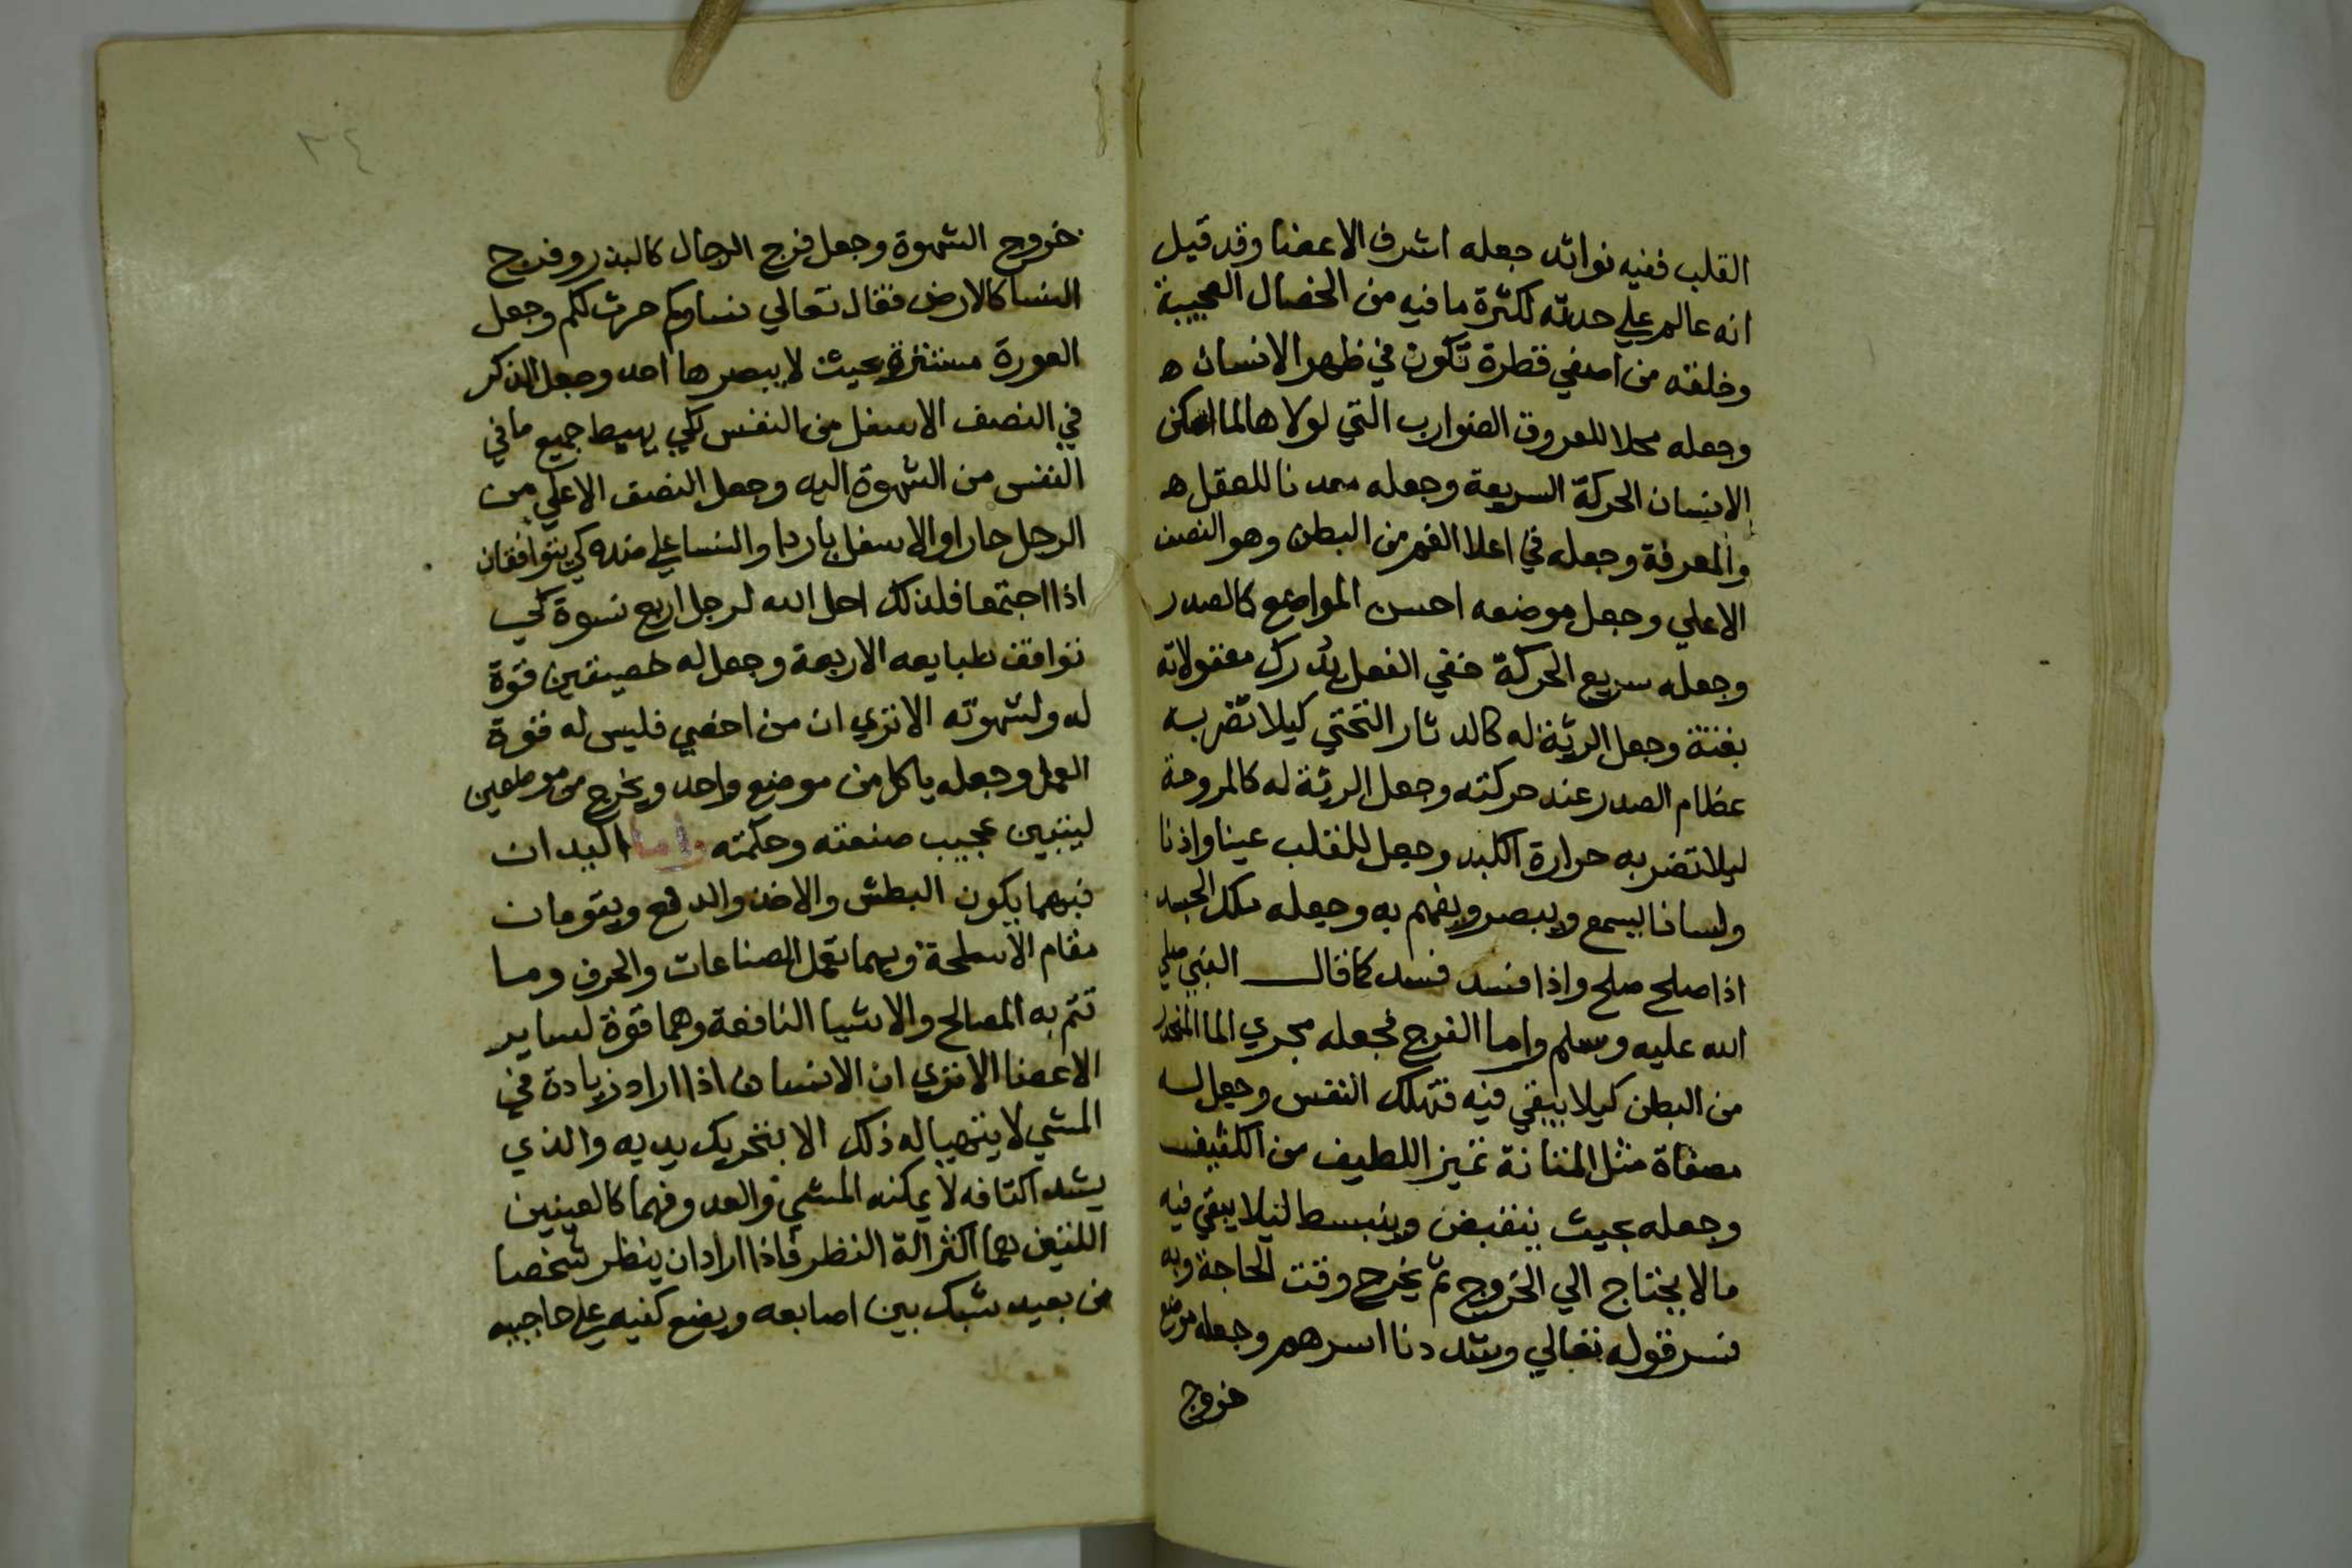 القلب ففيه فوائد جعله اشرف الاعضا وقد قيل
انه عالم علي حدته لكثرة ما فيه من الخصال العجيبة
وخلقته من اصفي قطرة تكون في ظهر الانسان ه
وجعله محلا للعروق الضوارب التي لولاها لما امكن
الانسان الحركة السريعة وجعله معدنا للعقل ه
والمعرفة وجعله في اعلا الفم من البطن وهو النصف
الاعلي وجعل موضعه احسن المواضع كالصدر
وجعله سريع الحركة خفي الفعل يدرك معقولاته
بغتة وجعل الرئة له كالدثار التحتي كيلا تضر به
عظام الصدر عند حركته وجعل الرئة له كالمروحة
ليلا تضر به حرارة الكبد وجعل للقلب عينا واذنا
ولسانا يسمع ويبصر ويفهم به وجعله ملك الجسد
اذا صلح صلح واذا فسد فسد كما قال النبي صلي
الله عليه وسلم واما الفرج فجعله مجري الما المنحدر
من البطن كيلا يبقي فيه فتهلك النفس وجعل له
مصفاة مثل المثانة تميز اللطيف من الكثيف
وجعله بحيث ينقبض وينبسط ليلا يبقي فيه
مالا يحتاج الي الخروج ثم يخرج وقت الحاجة وبه
فسر قوله تعالي وشددنا اسرهم وجعله موضع
خروج
٣٤
خروج الشهوة وجعل فرج الرجال كالبذر وفرج
النسا كالارض فقال تعالي نساوكم حرث لكم وجعل
العورة مستترة بحيث لا يبصرها احد وجعل الذكر
في النصف الاسفل من النفس لكي يهبط جميع ما في
النفس من الشهوة اليه وجعل النصف الاعلي من
الرجل حارا والاسفل باردا والنسا علي ضده كي يتوافقان
اذا اجتمعا فلذلك احل الله لرجل اربع نسوة كي
توافق طبايعه الاربعة وجعل له خصيتين قوة
له ولشهوته الا تري ان من اخصي فليس له قوة
العمل وجعله ياكل من موضع واحد ويخرج من موضعين
ليتبين عجيب صنعته وحكمته واما اليدان
فبهما يكون البطش والاخذ والدفع ويقومان
مقام الاسلحة وبهما تعمل الصناعات والحرف وما
تتم به المصالح والاشيا النافعة وهما قوة لساير
الاعضا الا تري ان الانسان اذا اراد زيادة في
المشي لا يتهيا له ذلك الا بتحريك يديه والذي
يشد اكتافه لا يمكنه المشي والعدو فهما كالعينين
اللتين هما اكثر الة النظر فاذا اراد ان ينظر شخصا
من بعيد شبك بين اصابعه ويضع كفيه علي حاجبيه